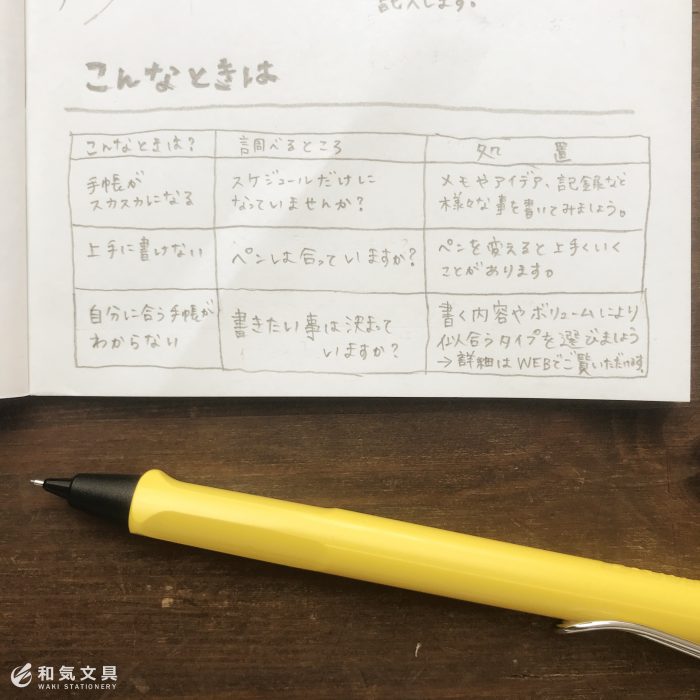 記入します。
こんなときは
こんなときは? 調べるところ 処置
手帳が
スカスカになる
スケジュールだけに
なっていませんか?
メモやアイデア、記録など
様々な事を書いてみましょう。
上手に書けない
ペンは合っていますか?
ペンを変えると上手くいく
ことがあります。
自分に合う手帳が
わからない
書きたい事は決まって
いますか?
書く内容やボリュームにより
似合うタイプを選びましょう
→詳細はWEBでご覧いただけます
和気文具
WAKI STATIONERY